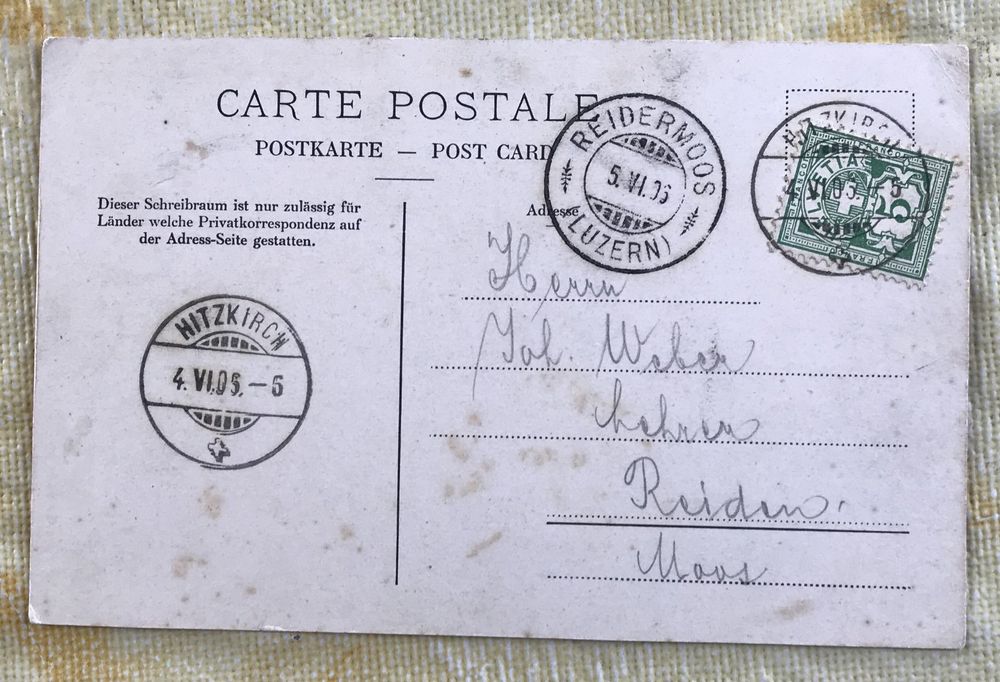 CARTE POSTALE
POSTKARTE — POST CARD
Dieser Schreibraum ist nur zulässig für
Länder welche Privatkorrespondenz auf
der Adress-Seite gestatten.
Adresse
REIDERMOOS
5.VI.05
(LUZERN)
HITZKIRCH
4.VI.05.-5
HELVETIA
5
HITZKIRCH
4.VI.05.-5
Herrn
Joh. Weber
Lehrer
Reiden.
Moos